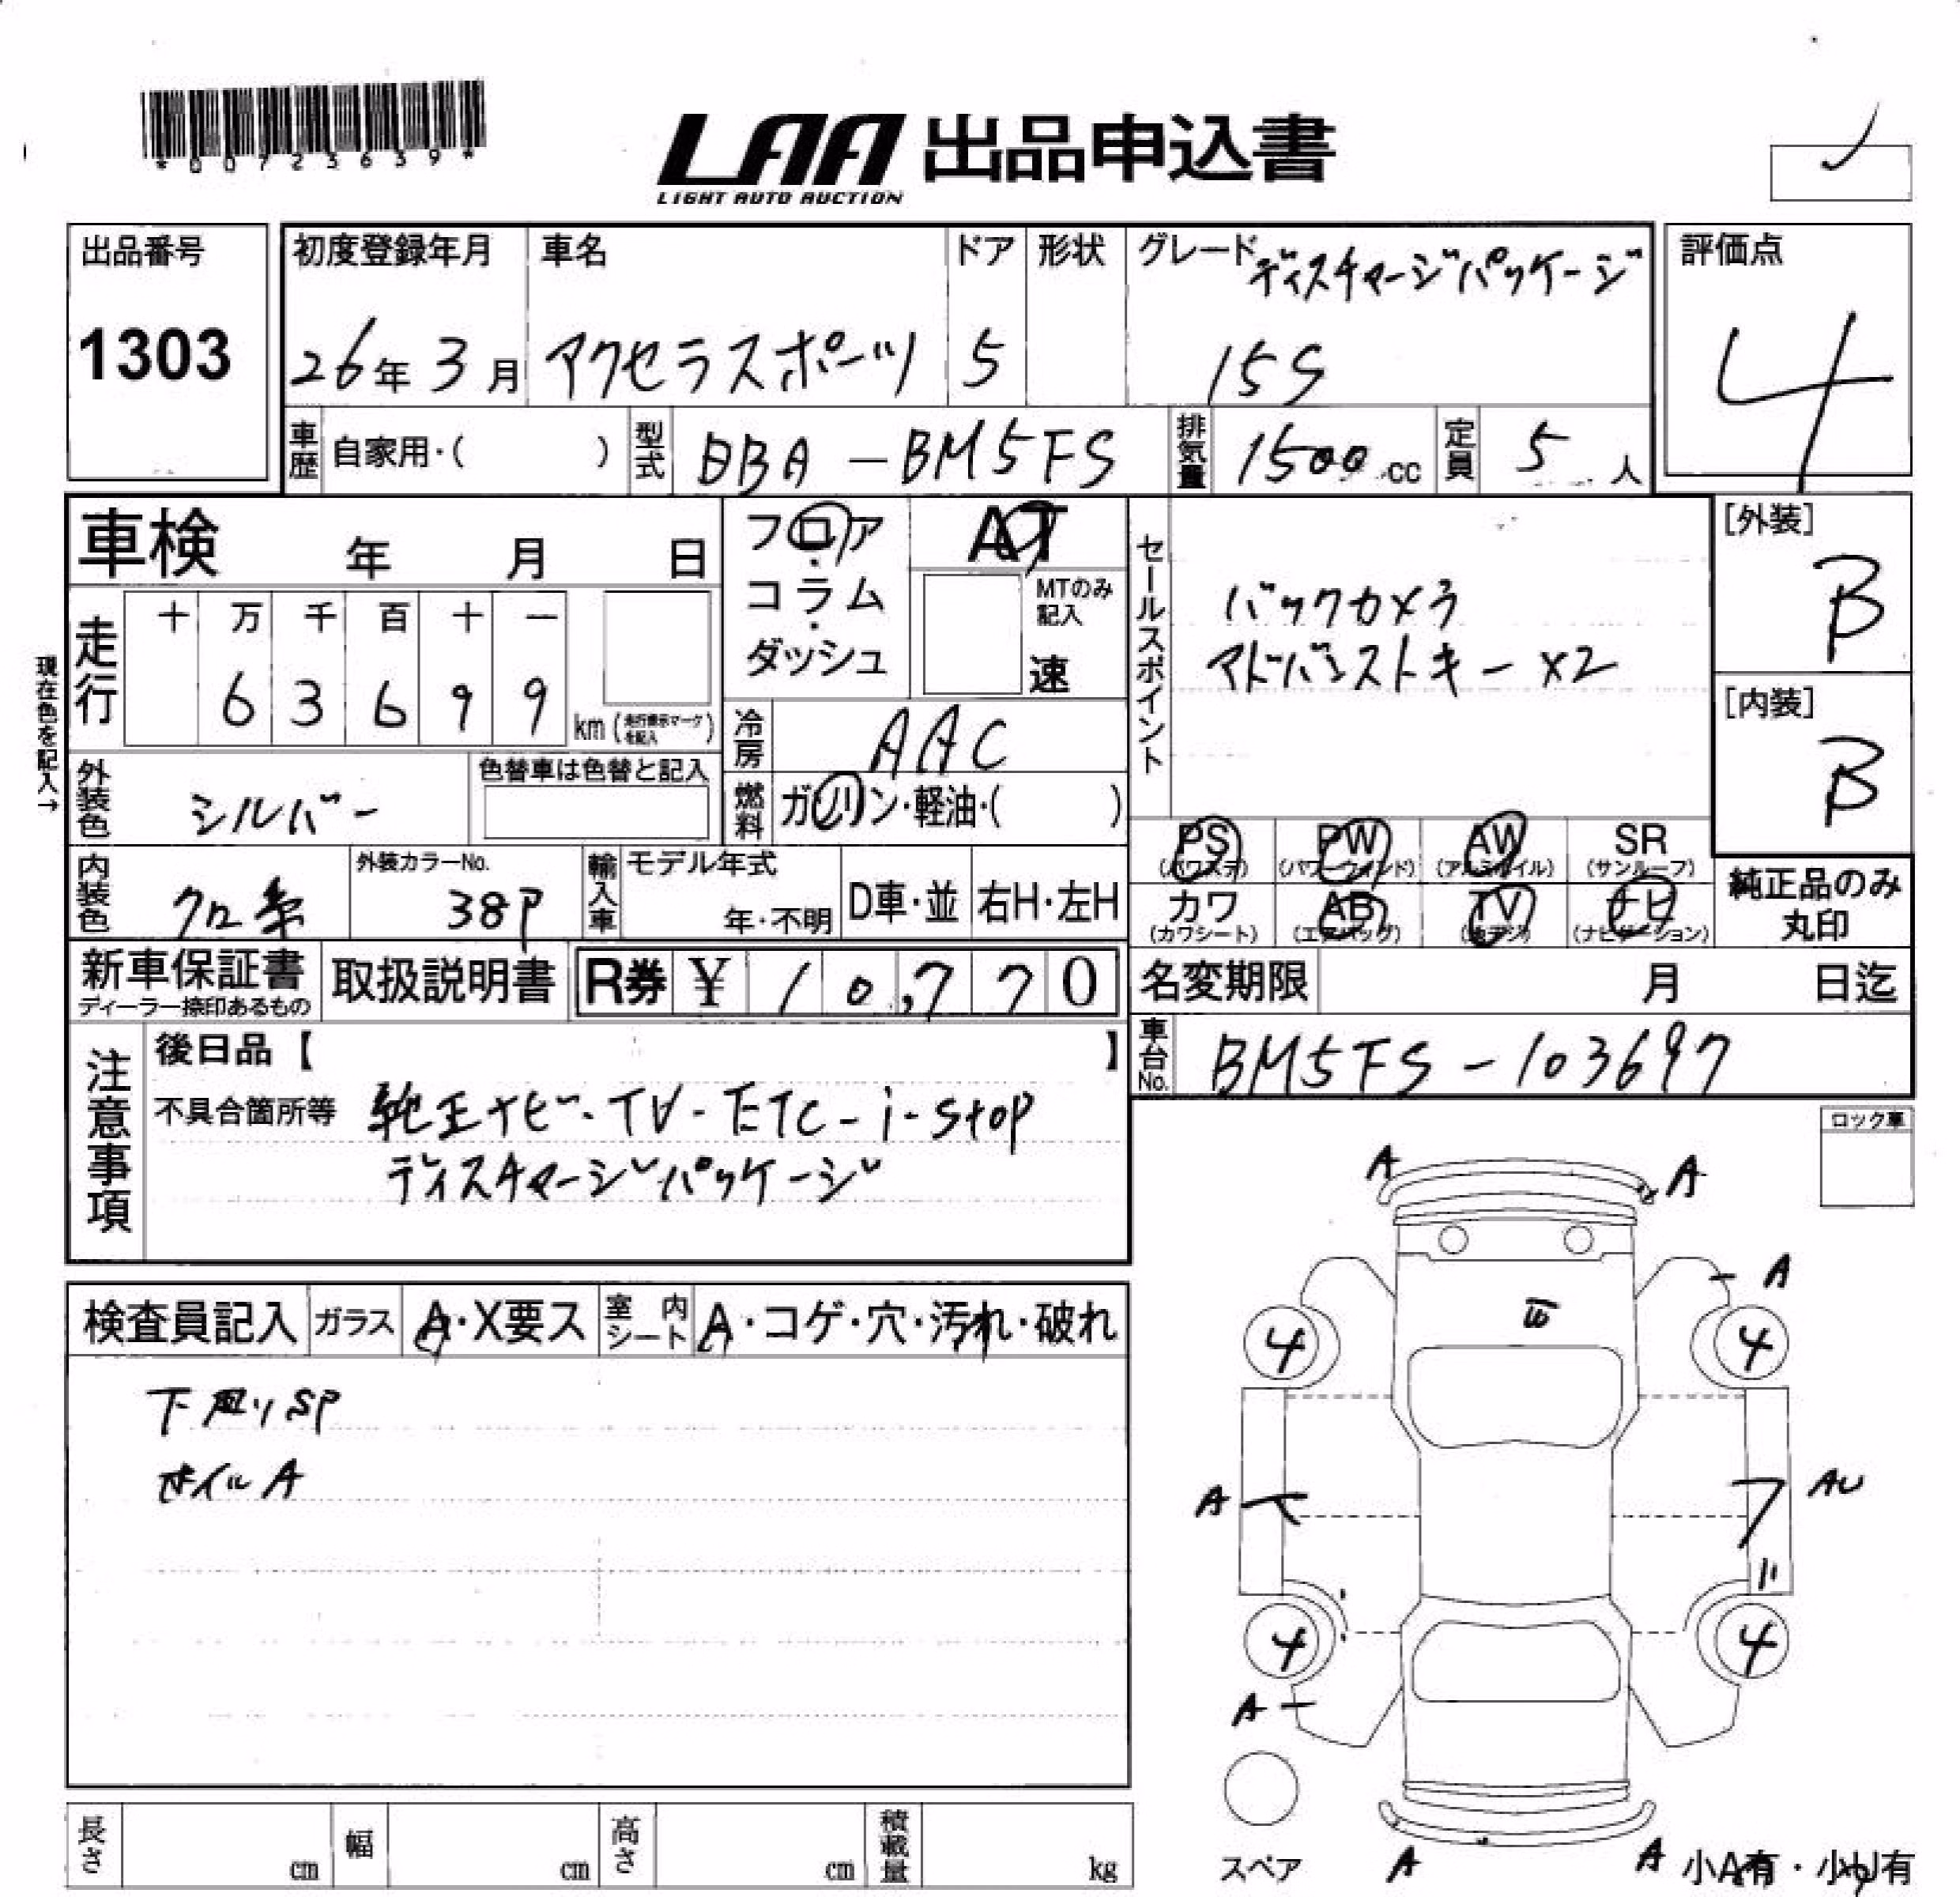 *00723639*
LAA 出品申込書
LIGHT AUTO AUCTION
出品番号
1303
初度登録年月
26年 3月
車名
アクセラスポーツ
ドア
5
形状
グレード
ディスチャージパッケージ
15S
評価点
4
車歴 自家用・( )
型式 DBA-BM5FS
排気量 1500cc
定員 5人
車検 年 月 日
フロア・コラム・ダッシュ
AT
MTのみ記入
速
セールスポイント
バックカメラ
アドバンストキー×2
[外装]
B
[内装]
B
現在色を記入→
走行
十 万 千 百 十 一
6 3 6 9 9
km(走行表示マークを記入)
冷房 AAC
外装色 シルバー
色替車は色替と記入
燃料 ガソリン・軽油・( )
PS
(パワステ)
PW
(パワーウィンド)
AW
(アルミホイル)
SR
(サンルーフ)
カワ
(カワシート)
AB
(エアバッグ)
TV
(カラテレ)
ナビ
(ナビゲーション)
純正品のみ
丸印
内装色 クロ系
外装カラーNo.
38P
輸入車
モデル年式
年・不明
D車・並
右H・左H
新車保証書
ディーラー捺印あるもの
取扱説明書
R券 ¥10,770
名変期限 月 日迄
注意事項
後日品【 】
不具合箇所等 純正ナビ-TV-ETC-i-stop
ディスチャージパッケージ
車台No. BM5FS-103697
ロック車
検査員記入
ガラス A・X要ス
室内シート A・コゲ・穴・汚れ・破れ
下廻りSP
ホイルA
A
A
A
4
4
A
AU
4
4
A
スペア
A
A
小A有・小U有
長さ cm
幅 cm
高さ cm
積載量 kg